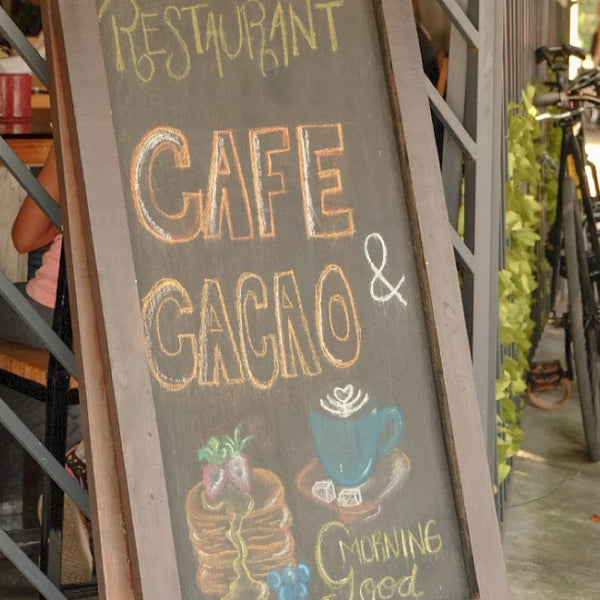 RESTAURANT
CAFE
&
CACAO
MORNING
Good